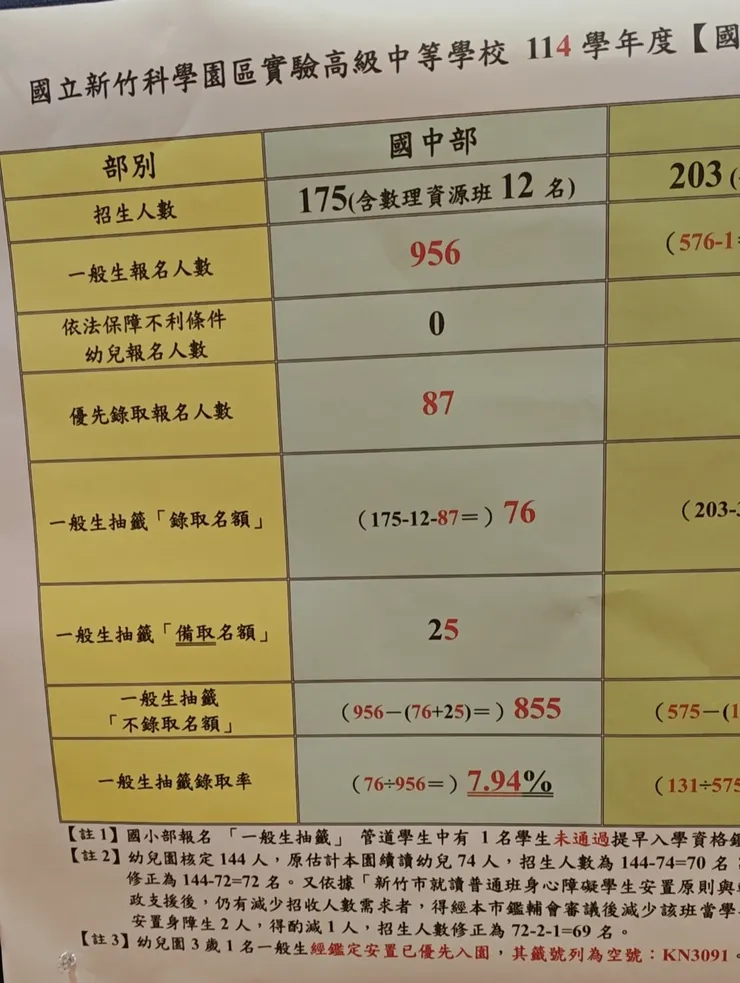 國立新竹科學園區實驗高級中等學校 114 學年度【國
部別 國中部
招生人數 175(含數理資源班 12 名) 203 (
一般生報名人數 956 (576-1=
依法保障不利條件
幼兒報名人數 0
優先錄取報名人數 87
一般生抽籤「錄取名額」 (175-12-87=) 76 (203-
一般生抽籤「備取名額」 25
一般生抽籤
「不錄取名額」 (956-(76+25)=) 855 (575-(1
一般生抽籤錄取率 (76÷956=) 7.94% (131÷575
【註1】國小部報名 「一般生抽籤」 管道學生中有 1 名學生未通過提早入學資格鑑
【註2】幼兒園核定 144 人，原估計本園續讀幼兒 74 人，招生人數為 144-74=70 名
修正為 144-72=72 名。又依據「新竹市就讀普通班身心障礙學生安置原則與
政支援後，仍有減少招收人數需求者，得經本市鑑輔會審議後減少該班當學
安置身障生 2 人，得酌減 1 人，招生人數修正為 72-2-1=69 名。
【註3】幼兒園 3 歲 1 名一般生經鑑定安置已優先入園，其籤號列為空號：KN3091。